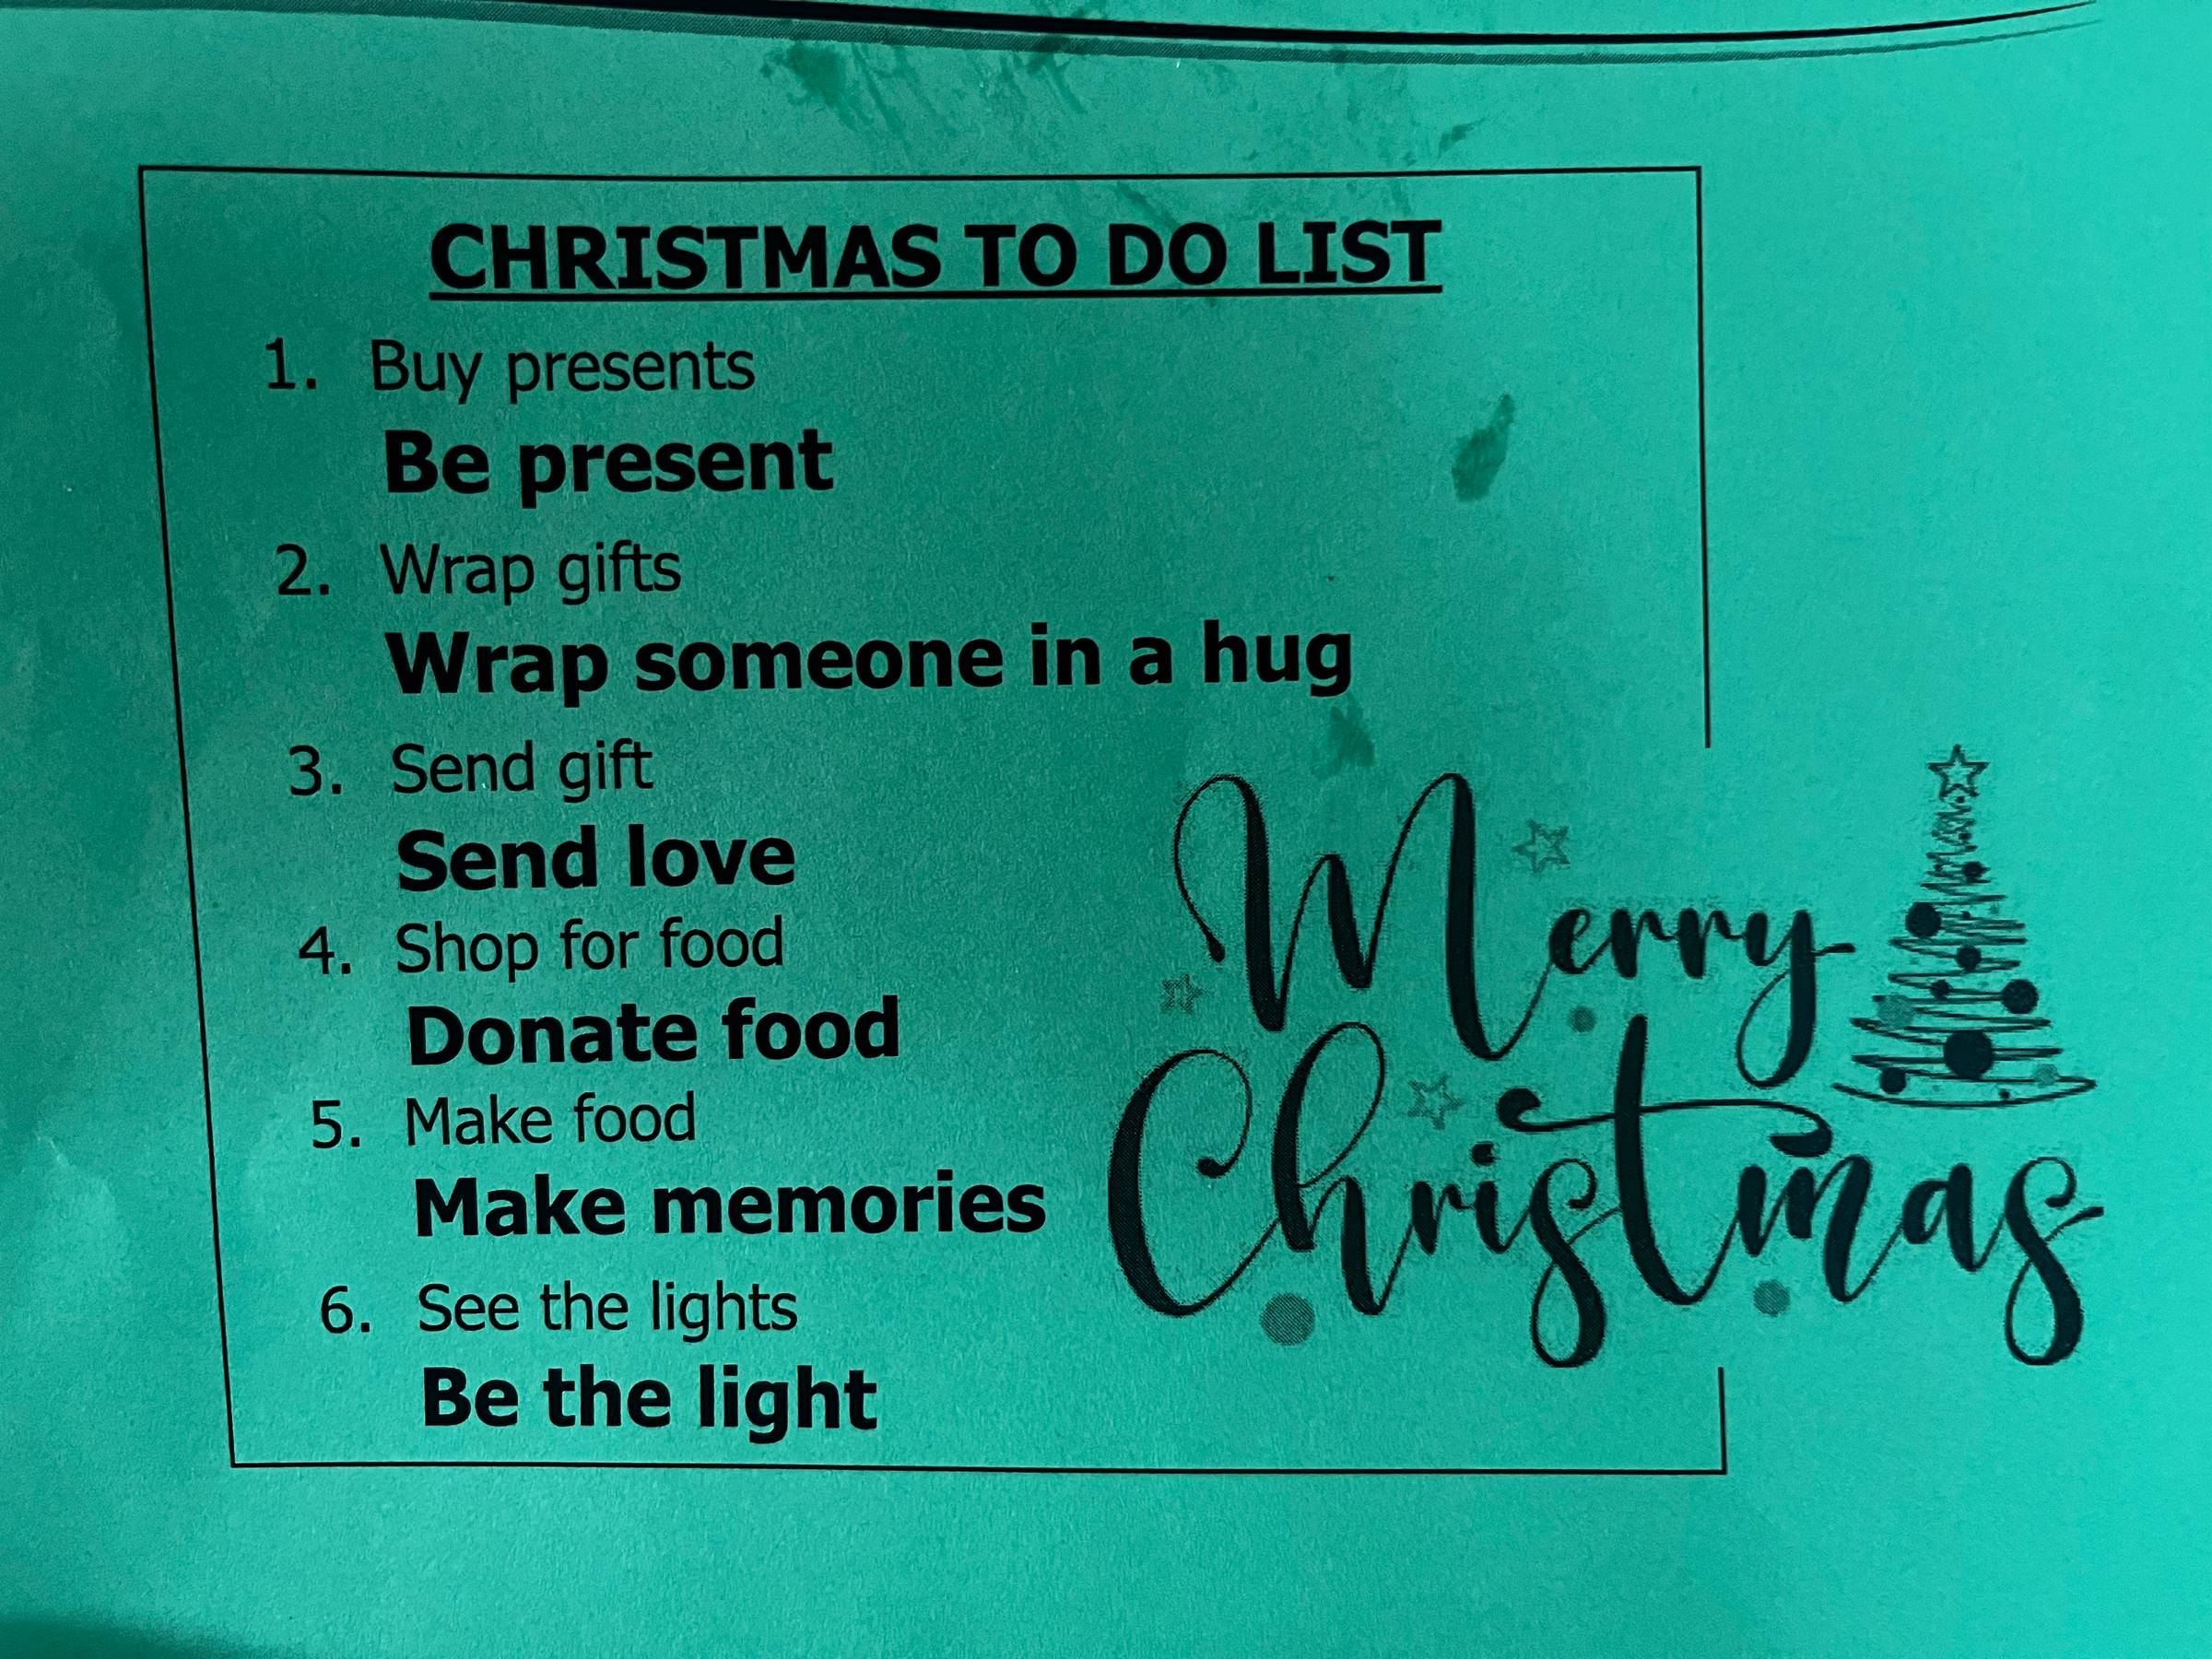 CHRISTMAS TO DO LIST
1. Buy presents
Be present
2. Wrap gifts
Wrap someone in a hug
3. Send gift
Send love
4. Shop for food
Donate food
5. Make food
Make memories
6. See the lights
Be the light
Merry
Christmas